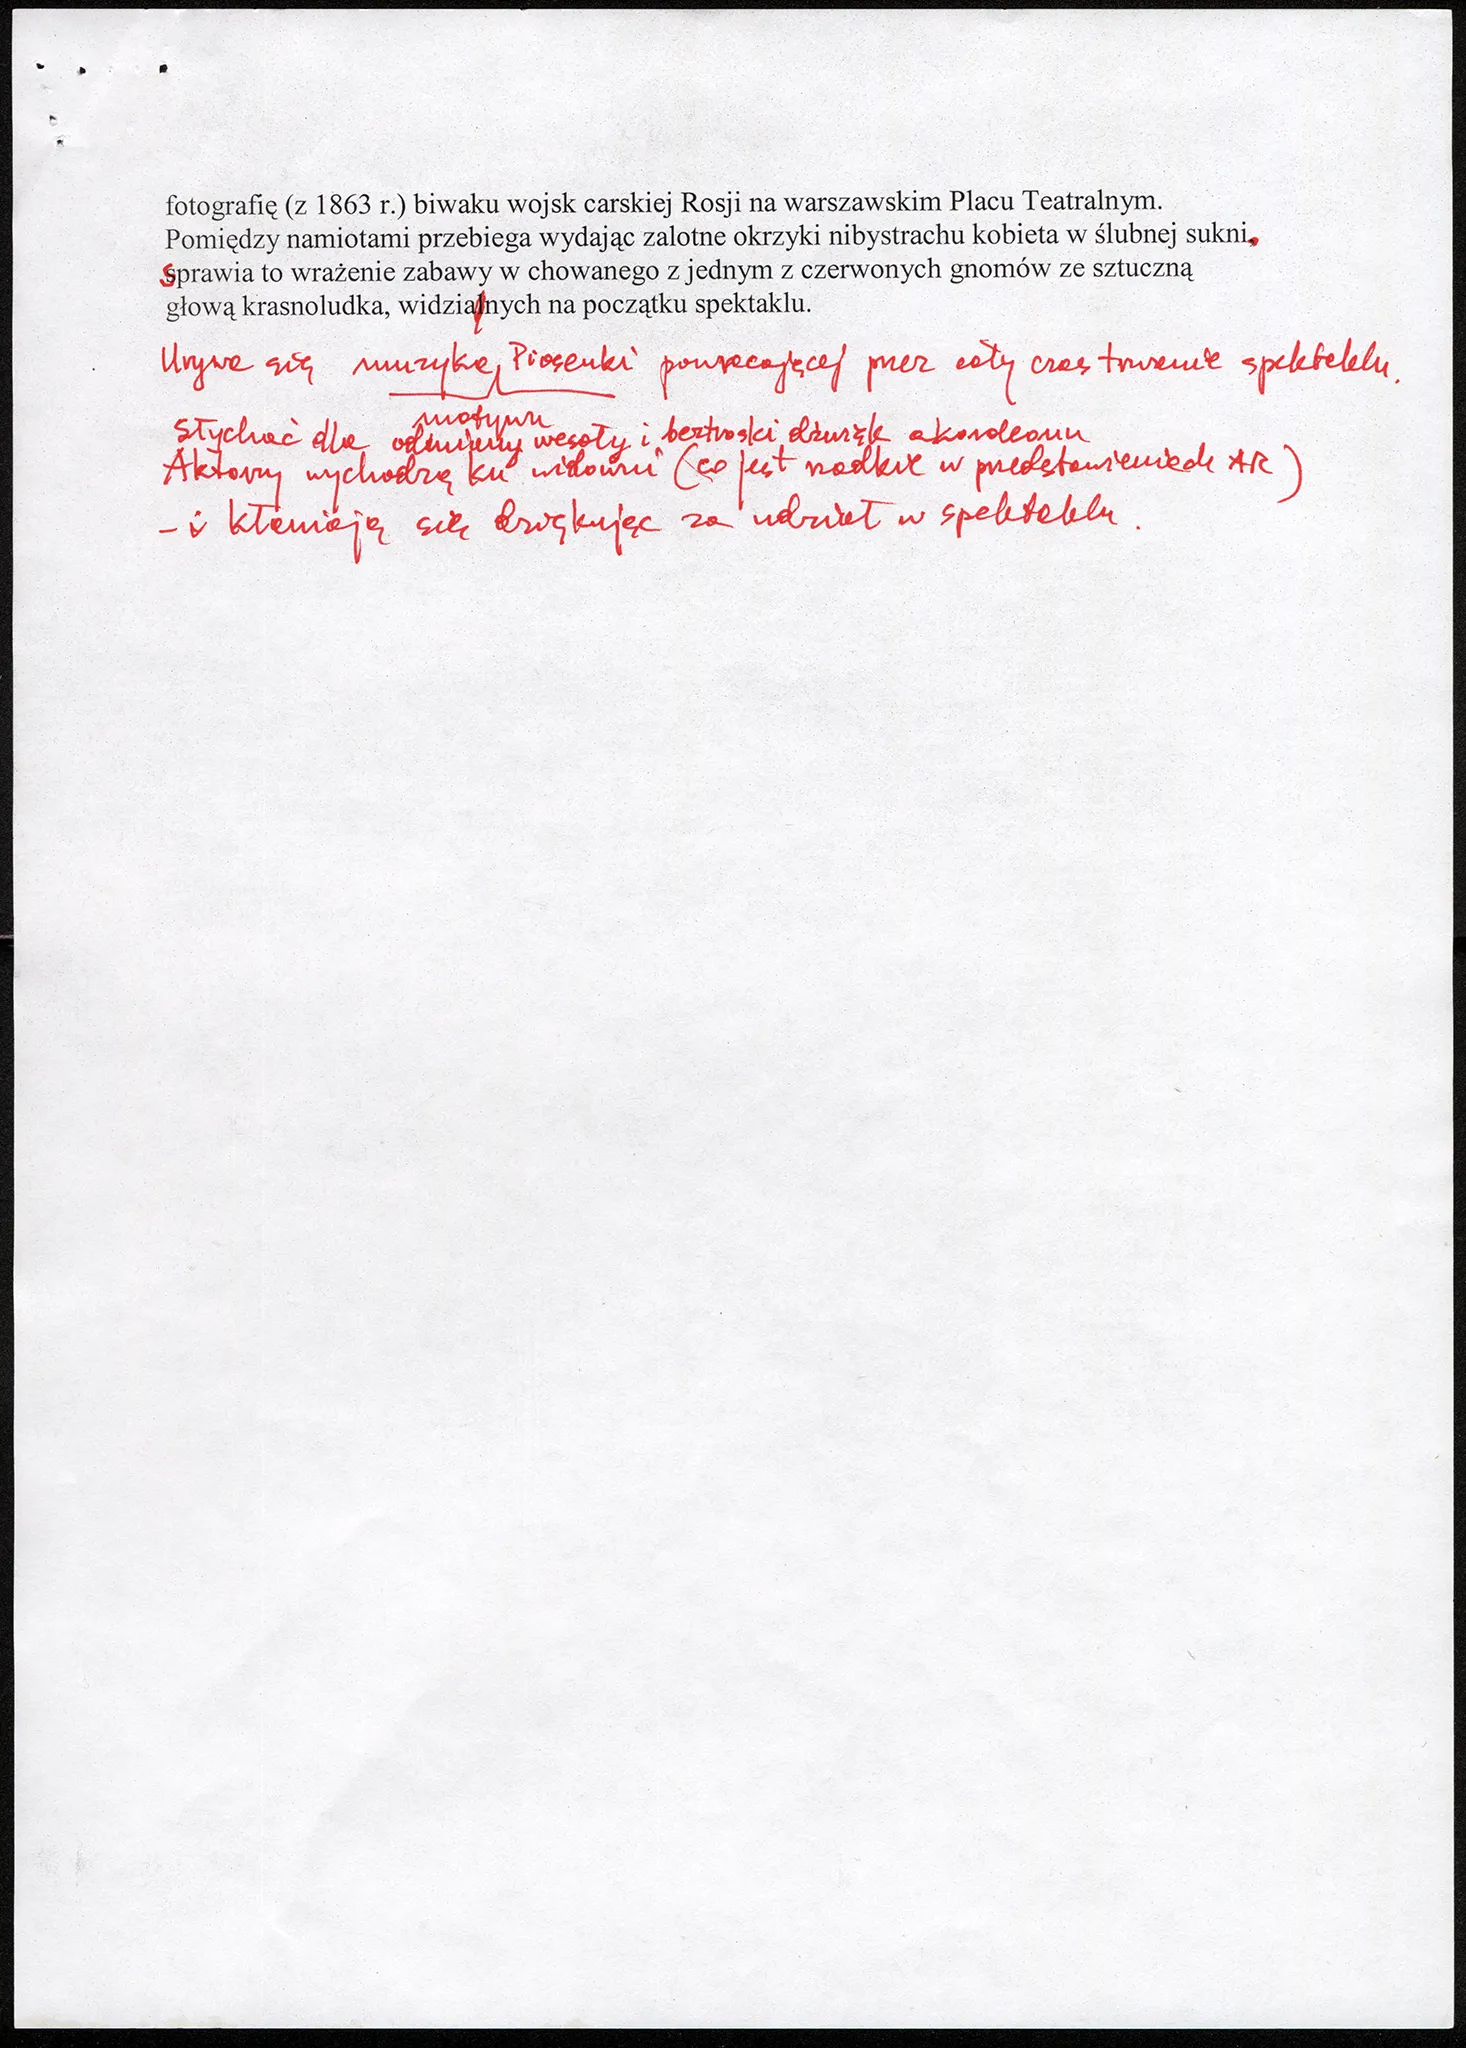 fotografię (z 1863 r.) biwaku wojsk carskiej Rosji na warszawskim Placu Teatralnym.
Pomiędzy namiotami przebiega wydając zalotne okrzyki nibystrachu kobieta w ślubnej sukni,
sprawia to wrażenie zabawy w chowanego z jednym z czerwonych gnomów ze sztuczną
głową krasnoludka, widzialnych na początku spektaklu.
Urywa się muzyka, Piosenki powracającej przez cały czas trwania spektaklu.
motywu
Słychać dla odmiany wesoły i beztroski dźwięk akordeonu
Aktorzy wychodzą ku widowni (co jest rzadkie w przedstawieniach AR)
– i kłaniają się dziękując za udział w spektaklu.